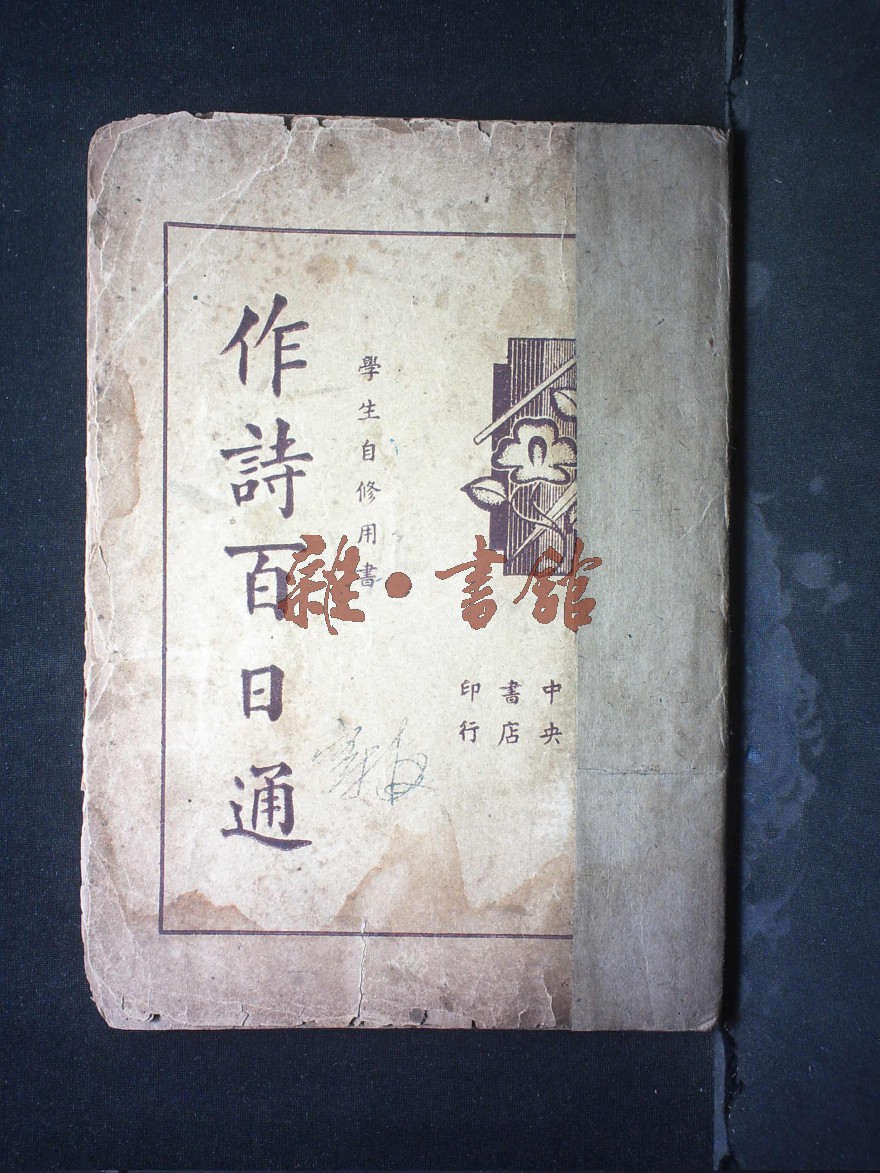 中央
書店
印行
學生自修用書
作詩百日通
雜·書館